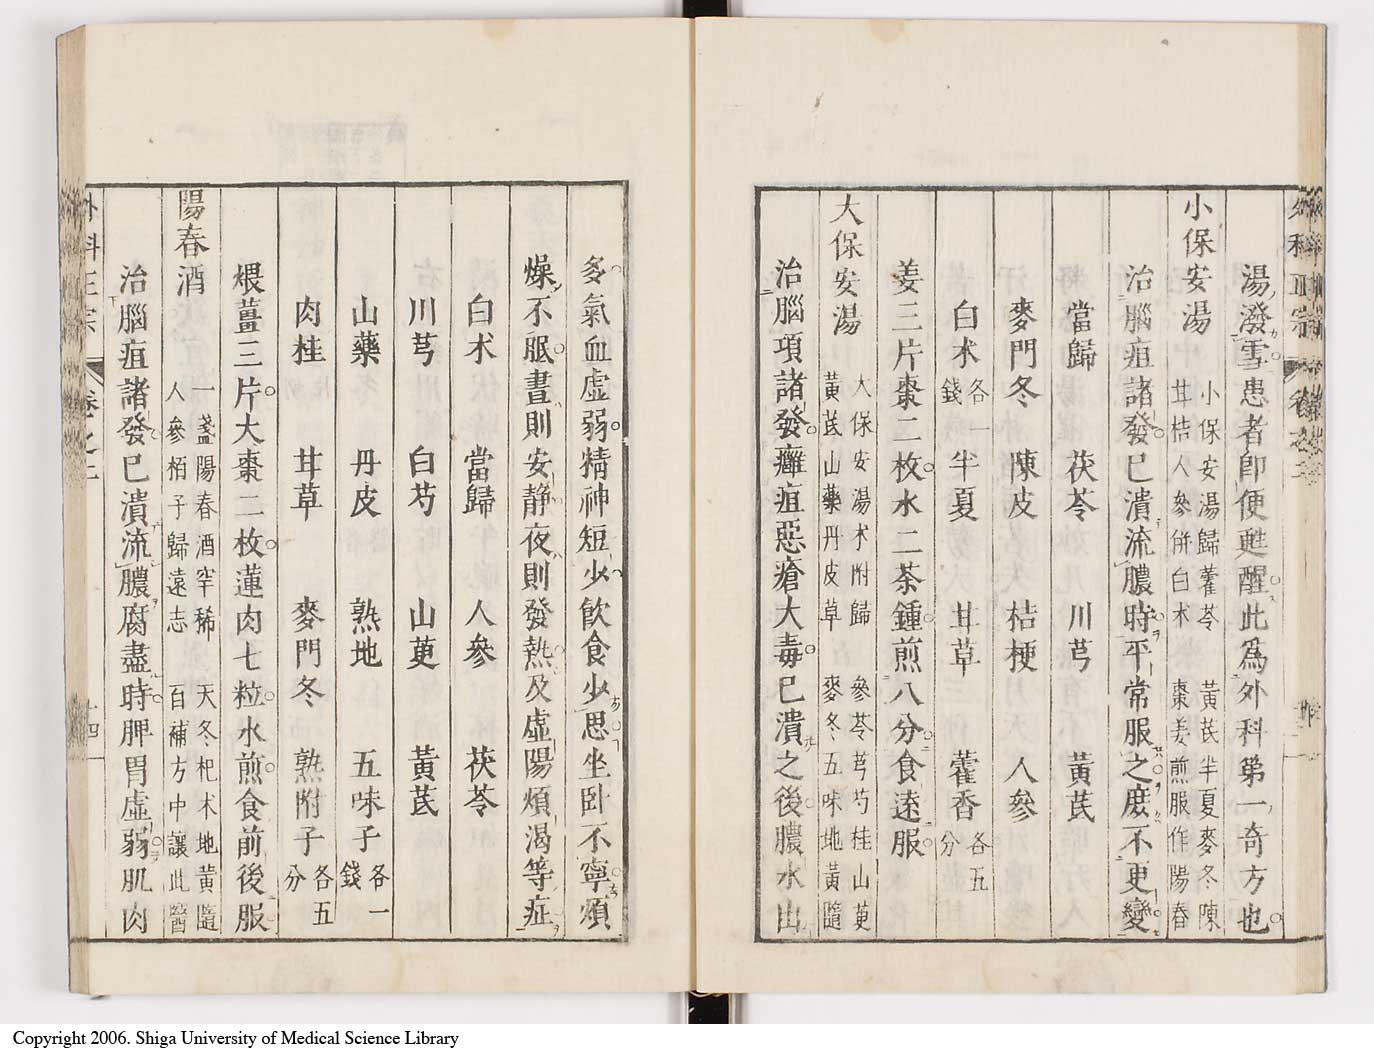 湯潑雪患者即便甦醒此為外科第一奇方也
小保安湯
小保安湯歸藿苓　黃芪半夏麥冬陳
甘桔人參併白朮　棗姜煎服作陽春
治腦疽諸發已潰流膿時平常服之庶不更變
當歸　茯苓　川芎　黃芪
麥門冬　陳皮　桔梗　人參
白朮各一錢　半夏　甘草　藿香各五分
姜三片棗二枚水二茶鍾煎八分食遠服
大保安湯
大保安湯朮附歸　參苓芎芍桂山萸
黃芪山藥丹皮草　麥冬五味地黃隨
治腦項諸發癰疽惡瘡大毒已潰之後膿水出
多氣血虛弱精神短少飲食少思坐卧不寧煩
燥不眠晝則安静夜則發熱及虛陽煩渴等症
白朮　當歸　人參　茯苓
川芎　白芍　山萸　黃芪
山藥　丹皮　熟地　五味子各一錢
肉桂　甘草　麥門冬　熟附子各五分
煨薑三片大棗二枚蓮肉七粒水煎食前後服
陽春酒
一盞陽春酒罕稀　天冬杞朮地黃隨
人參栢子歸遠志　百補方中讓此醫
治腦疽諸發已潰流膿腐盡時脾胃虛弱肌肉
外科正宗
卷之二
十四
Copyright 2006. Shiga University of Medical Science Library